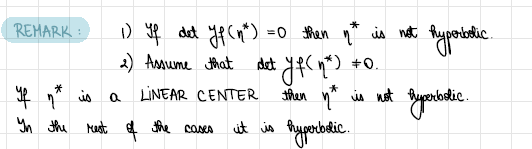 REMARK: 1) If det Jf(η*) = 0 then η* is not hyperbolic.
2) Assume that det Jf(η*) ≠ 0.
If η* is a LINEAR CENTER then η* is not hyperbolic.
In the rest of the cases it is hyperbolic.